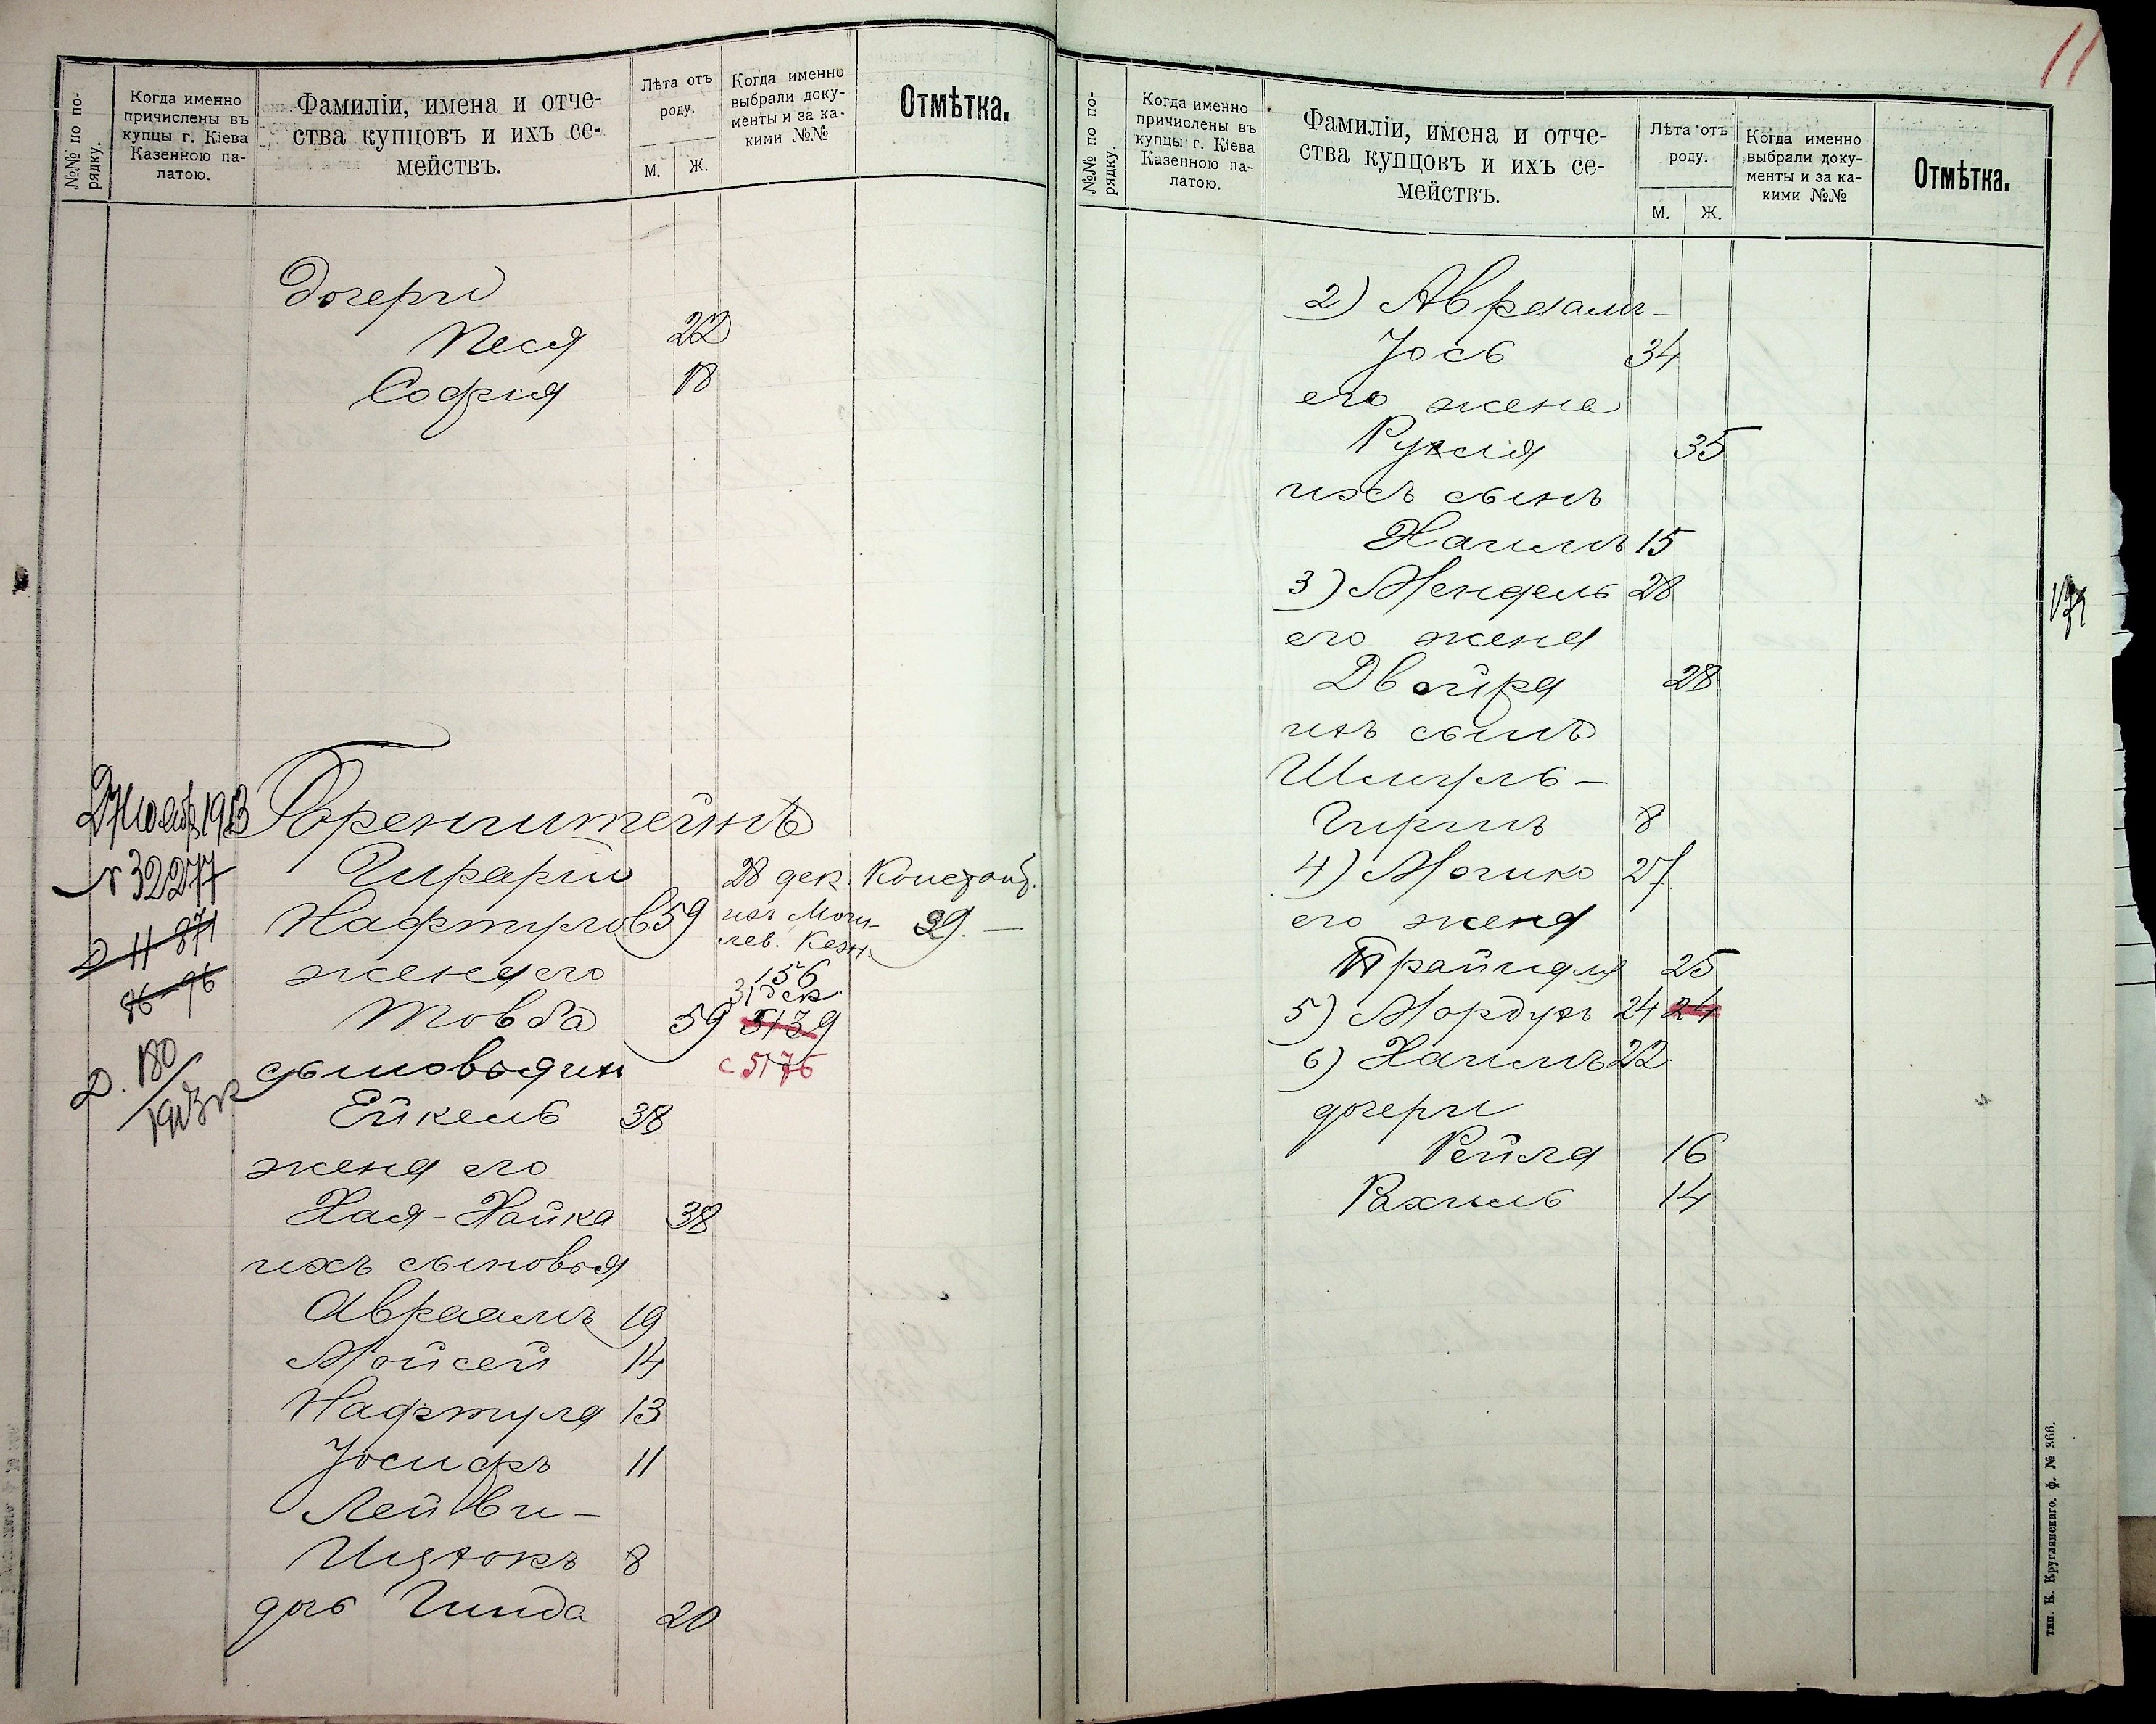 №№ по по-
рядку.
Когда именно
причислены въ
купцы г. Кіева
Казенною па-
латою.
Фамиліи, имена и отче-
ства купцовъ и ихъ се-
мействъ.
Лѣта отъ
роду.
М.
Ж.
Когда именно
выбрали доку-
менты и за ка-
кими №№
Отмѣтка.
дочери
Песя 22
София 18
1913
№ 32277
11 871
86-96
Д. 180
1913
Горенштейнъ
Нафтулов 59
28 дек.
изъ Моги-
лев. Казн.
39. —
156
31 дек
жена его
Товба 59
5139
с 5176
сыновья их
Ейкель 38
жена его
Хая-Хайка 38
ихъ сыновья
Авраамъ 19
Мойсей 14
Нафтула 13
Іосифъ 11
Лейви-
Ицхокъ 8
дочь Гинда 20
11
№№ по по-
рядку.
Когда именно
причислены въ
купцы г. Кіева
Казенною па-
латою.
Фамиліи, имена и отче-
ства купцовъ и ихъ се-
мействъ.
Лѣта отъ
роду.
М.
Ж.
Когда именно
выбрали доку-
менты и за ка-
кими №№
Отмѣтка.
2) Авраам-
Іось 34
его жена
Рухля 35
ихъ сынъ
Хаимъ 15
3) Мендель 28
его жена
Двойра 28
ихъ сынъ
Шмуль-
Гиршъ 8
4) Мошко 27
его жена
Трайндля 25
5) Мордухъ 24 24
6) Хаимъ 22
дочери
Рейля 16
Рахиль 14
тип. К. Круглянскаго, ф. № 366.